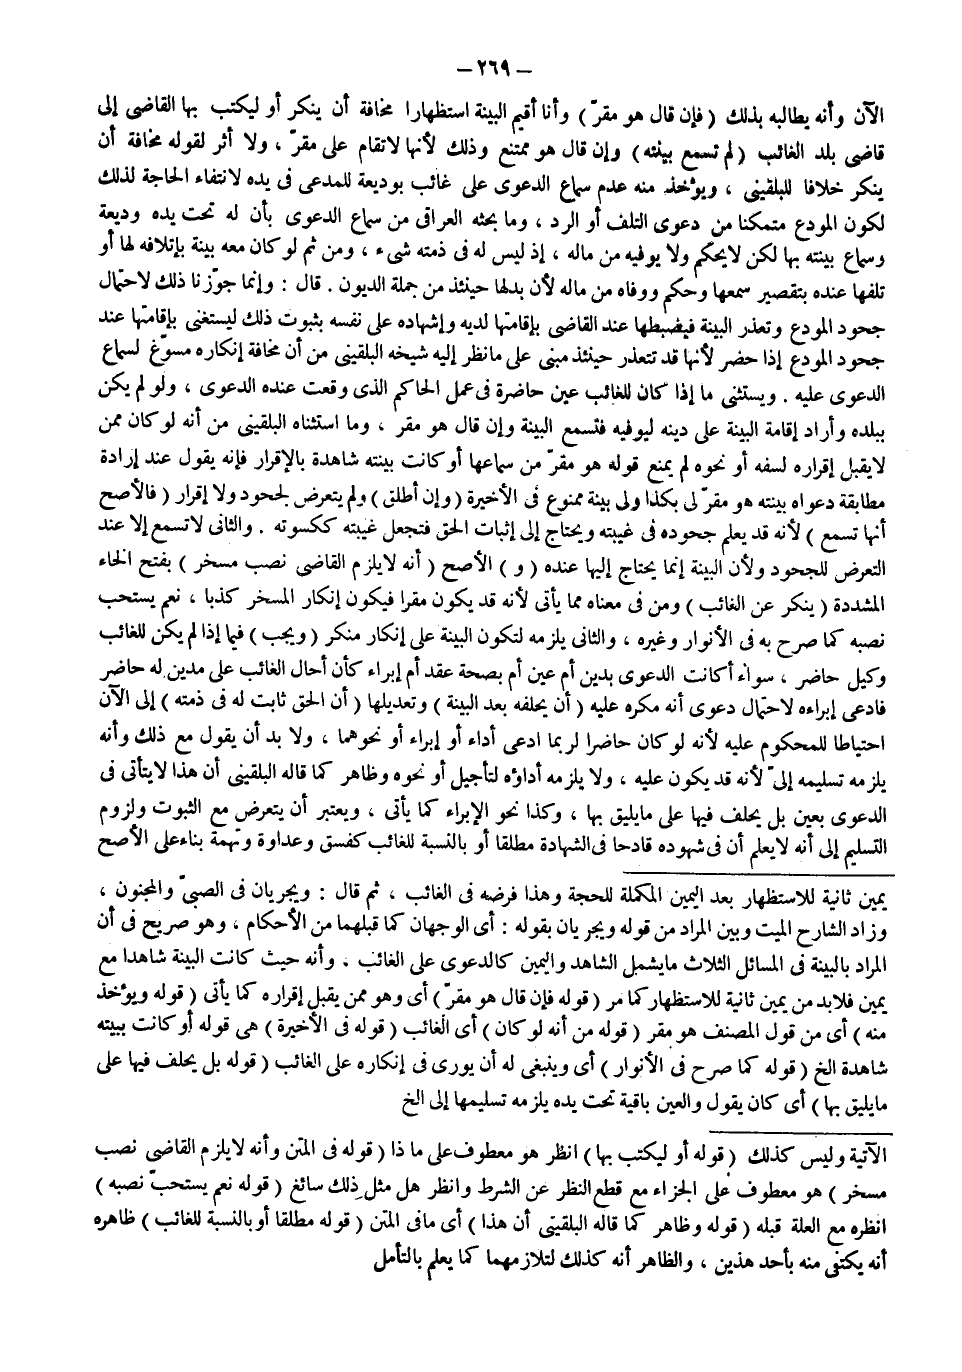 – ٢٦٩ –
الآن وأنه يطالبه بذلك ( فإن قال هو مقرّ ) وأنا أقيم البينة استظهارا مخافة أن ينكر أو ليكتب بها القاضى إلى
قاضى بلد الغائب ( لم تسمع بينته ) وإن قال هو ممتنع وذلك لأنها لاتقام على مقرّ ، ولا أثر لقوله مخافة أن
ينكر خلافا للبلقينى ، ويؤخذ منه عدم سماع الدعوى على غائب بوديعة للمدعى فى يده لانتفاء الحاجة لذلك
لكون المودع متمكنا من دعوى التلف أو الرد ، وما بحثه العراقى من سماع الدعوى بأن له تحت يده وديعة
وسماع بينته بها لكن لايحكم ولا يوفيه من ماله ، إذ ليس له فى ذمته شىء ، ومن ثم لو كان معه بينة بإتلافه لها أو
تلفها عنده بتقصير سمعها وحكم ووفاه من ماله لأن بدلها حينئذ من جملة الديون . قال : وإنما جوّزنا ذلك لاحتمال
جحود المودع وتعذر البينة فيضبطها عند القاضى بإقامتها لديه وإشهاده على نفسه بثبوت ذلك ليستغنى بإقامتها عند
جحود المودع إذا حضر لأنها قد تتعذر حينئذ مبنى على مانظر إليه شيخه البلقينى من أن مخافة إنكاره مسوّغ لسماع
الدعوى عليه . ويستثنى ما إذا كان للغائب عين حاضرة فى عمل الحاكم الذى وقعت عنده الدعوى ، ولو لم يكن
ببلده وأراد إقامة البينة على دينه ليوفيه فتسمع البينة وإن قال هو مقر ، وما استثناه البلقينى من أنه لو كان ممن
لايقبل إقراره لسفه أو نحوه لم يمنع قوله هو مقرّ من سماعها أو كانت بينته شاهدة بالإقرار فإنه يقول عند إرادة
مطابقة دعواه بينته هو مقرّ لى بكذا ولى بينة ممنوع فى الأخيرة ( وإن أطلق ) ولم يتعرض لجحود ولا إقرار ( فالأصح
أنها تسمع ) لأنه قد يعلم جحوده فى غيبته ويحتاج إلى إثبات الحق فتجعل غيبته كسكوته . والثانى لاتسمع إلا عند
التعرض للجحود ولأن البينة إنما يحتاج إليها عنده ( و ) الأصح ( أنه لايلزم القاضى نصب مسخر ) بفتح الخاء
المشددة ( ينكر عن الغائب ) ومن فى معناه مما يأتى لأنه قد يكون مقرا فيكون إنكار المسخر كذبا ، نعم يستحب
نصبه كما صرح به فى الأنوار وغيره ، والثانى يلزمه لتكون البينة على إنكار منكر ( ويجب ) فيما إذا لم يكن للغائب
وكيل حاضر ، سواء أكانت الدعوى بدين أم عين أم بصحة عقد أم إبراء كأن أحال الغائب على مدين له حاضر
فادعى إبراءه لاحتمال دعوى أنه مكره عليه ( أن يحلفه بعد البينة ) وتعديلها ( أن الحق ثابت له فى ذمته ) إلى الآن
احتياطا للمحكوم عليه لأنه لو كان حاضرا لربما ادعى أداء أو إبراء أو نحوهما ، ولا بد أن يقول مع ذلك وأنه
يلزمه تسليمه إلىّ لأنه قد يكون عليه ، ولا يلزمه أداؤه لتأجيل أو نحوه وظاهر كما قاله البلقينى أن هذا لايتأتى فى
الدعوى بعين بل يحلف فيها على مايليق بها ، وكذا نحو الإبراء كما يأتى ، ويعتبر أن يتعرض مع الثبوت ولزوم
التسليم إلى أنه لايعلم أن فى شهوده قادحا فى الشهادة مطلقا أو بالنسبة للغائب كفسق وعداوة وتهمة بناء على الأصح
يمين ثانية للاستظهار بعد اليمين المكملة للحجة وهذا فرضه فى الغائب ، ثم قال : ويجريان فى الصبىّ والمجنون ،
وزاد الشارح الميت وبين المراد من قوله ويجريان بقوله : أى الوجهان كما قبلهما من الأحكام ، وهو صريح فى أن
المراد بالبينة فى المسائل الثلاث مايشمل الشاهد واليمين كالدعوى على الغائب ، وأنه حيث كانت البينة شاهدا مع
يمين فلابد من يمين ثانية للاستظهار كما مر ( قوله فإن قال هو مقرّ ) أى وهو ممن يقبل إقراره كما يأتى ( قوله ويؤخذ
منه ) أى من قول المصنف هو مقر ( قوله من أنه لو كان ) أى الغائب ( قوله فى الأخيرة ) هى قوله أو كانت ببينته
شاهدة الخ ( قوله كما صرح فى الأنوار ) أى وينبغى له أن يورى فى إنكاره على الغائب ( قوله بل يحلف فيها على
مايليق بها ) أى كان يقول والعين باقية تحت يده يلزمه تسليمها إلى الخ
الآتية وليس كذلك ( قوله أو ليكتب بها ) انظر هو معطوف على ما ذا ( قوله فى المتن وأنه لايلزم القاضى نصب
مسخر ) هو معطوف على الجزاء مع قطع النظر عن الشرط وانظر هل مثل ذلك سائغ ( قوله نعم يستحبّ نصبه )
انظره مع العلة قبله ( قوله وظاهر كما قاله البلقينى أن هذا ) أى مافى المتن ( قوله مطلقا أو بالنسبة للغائب ) ظاهره
أنه يكتفى منه بأحد هذين ، والظاهر أنه كذلك لتلازمهما كما يعلم بالتأمل